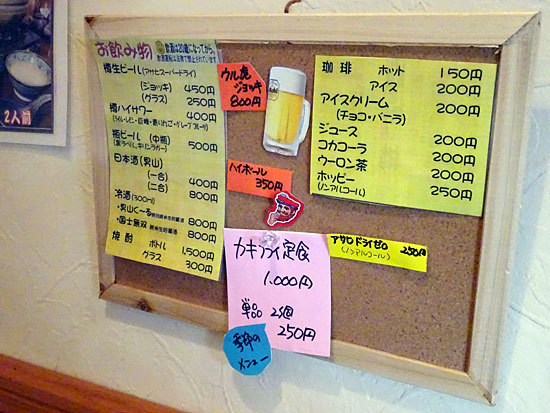 2人前
お飲み物
飲酒は20歳になってから。
飲酒運転は法律で禁止されています
樽生ビール(アサヒスーパードライ)
(ジョッキ) 450円
(グラス) 250円
樽ハイサワー 400円
瓶ビール(中瓶) 500円
(黒ラベル、キリンラガー)
日本酒(男山)
(一合) 400円
(二合) 800円
冷酒(300ml)
・男山く〜る 800円
・国士無双 800円
焼酎 ボトル 1,500円
グラス 300円
ウル虎
ジョッキ
800円
ハイボール
350円
珈琲 ホット 150円
アイス 200円
アイスクリーム 200円
(チョコ・バニラ)
ジュース 200円
コカコーラ 200円
ウーロン茶 200円
ホッピー 250円
(ノンアルコール)
アサヒドライゼロ 250円
(ノンアルコール)
カキフライ定食
1,000円
単品 2個
250円
季節の
メニュー